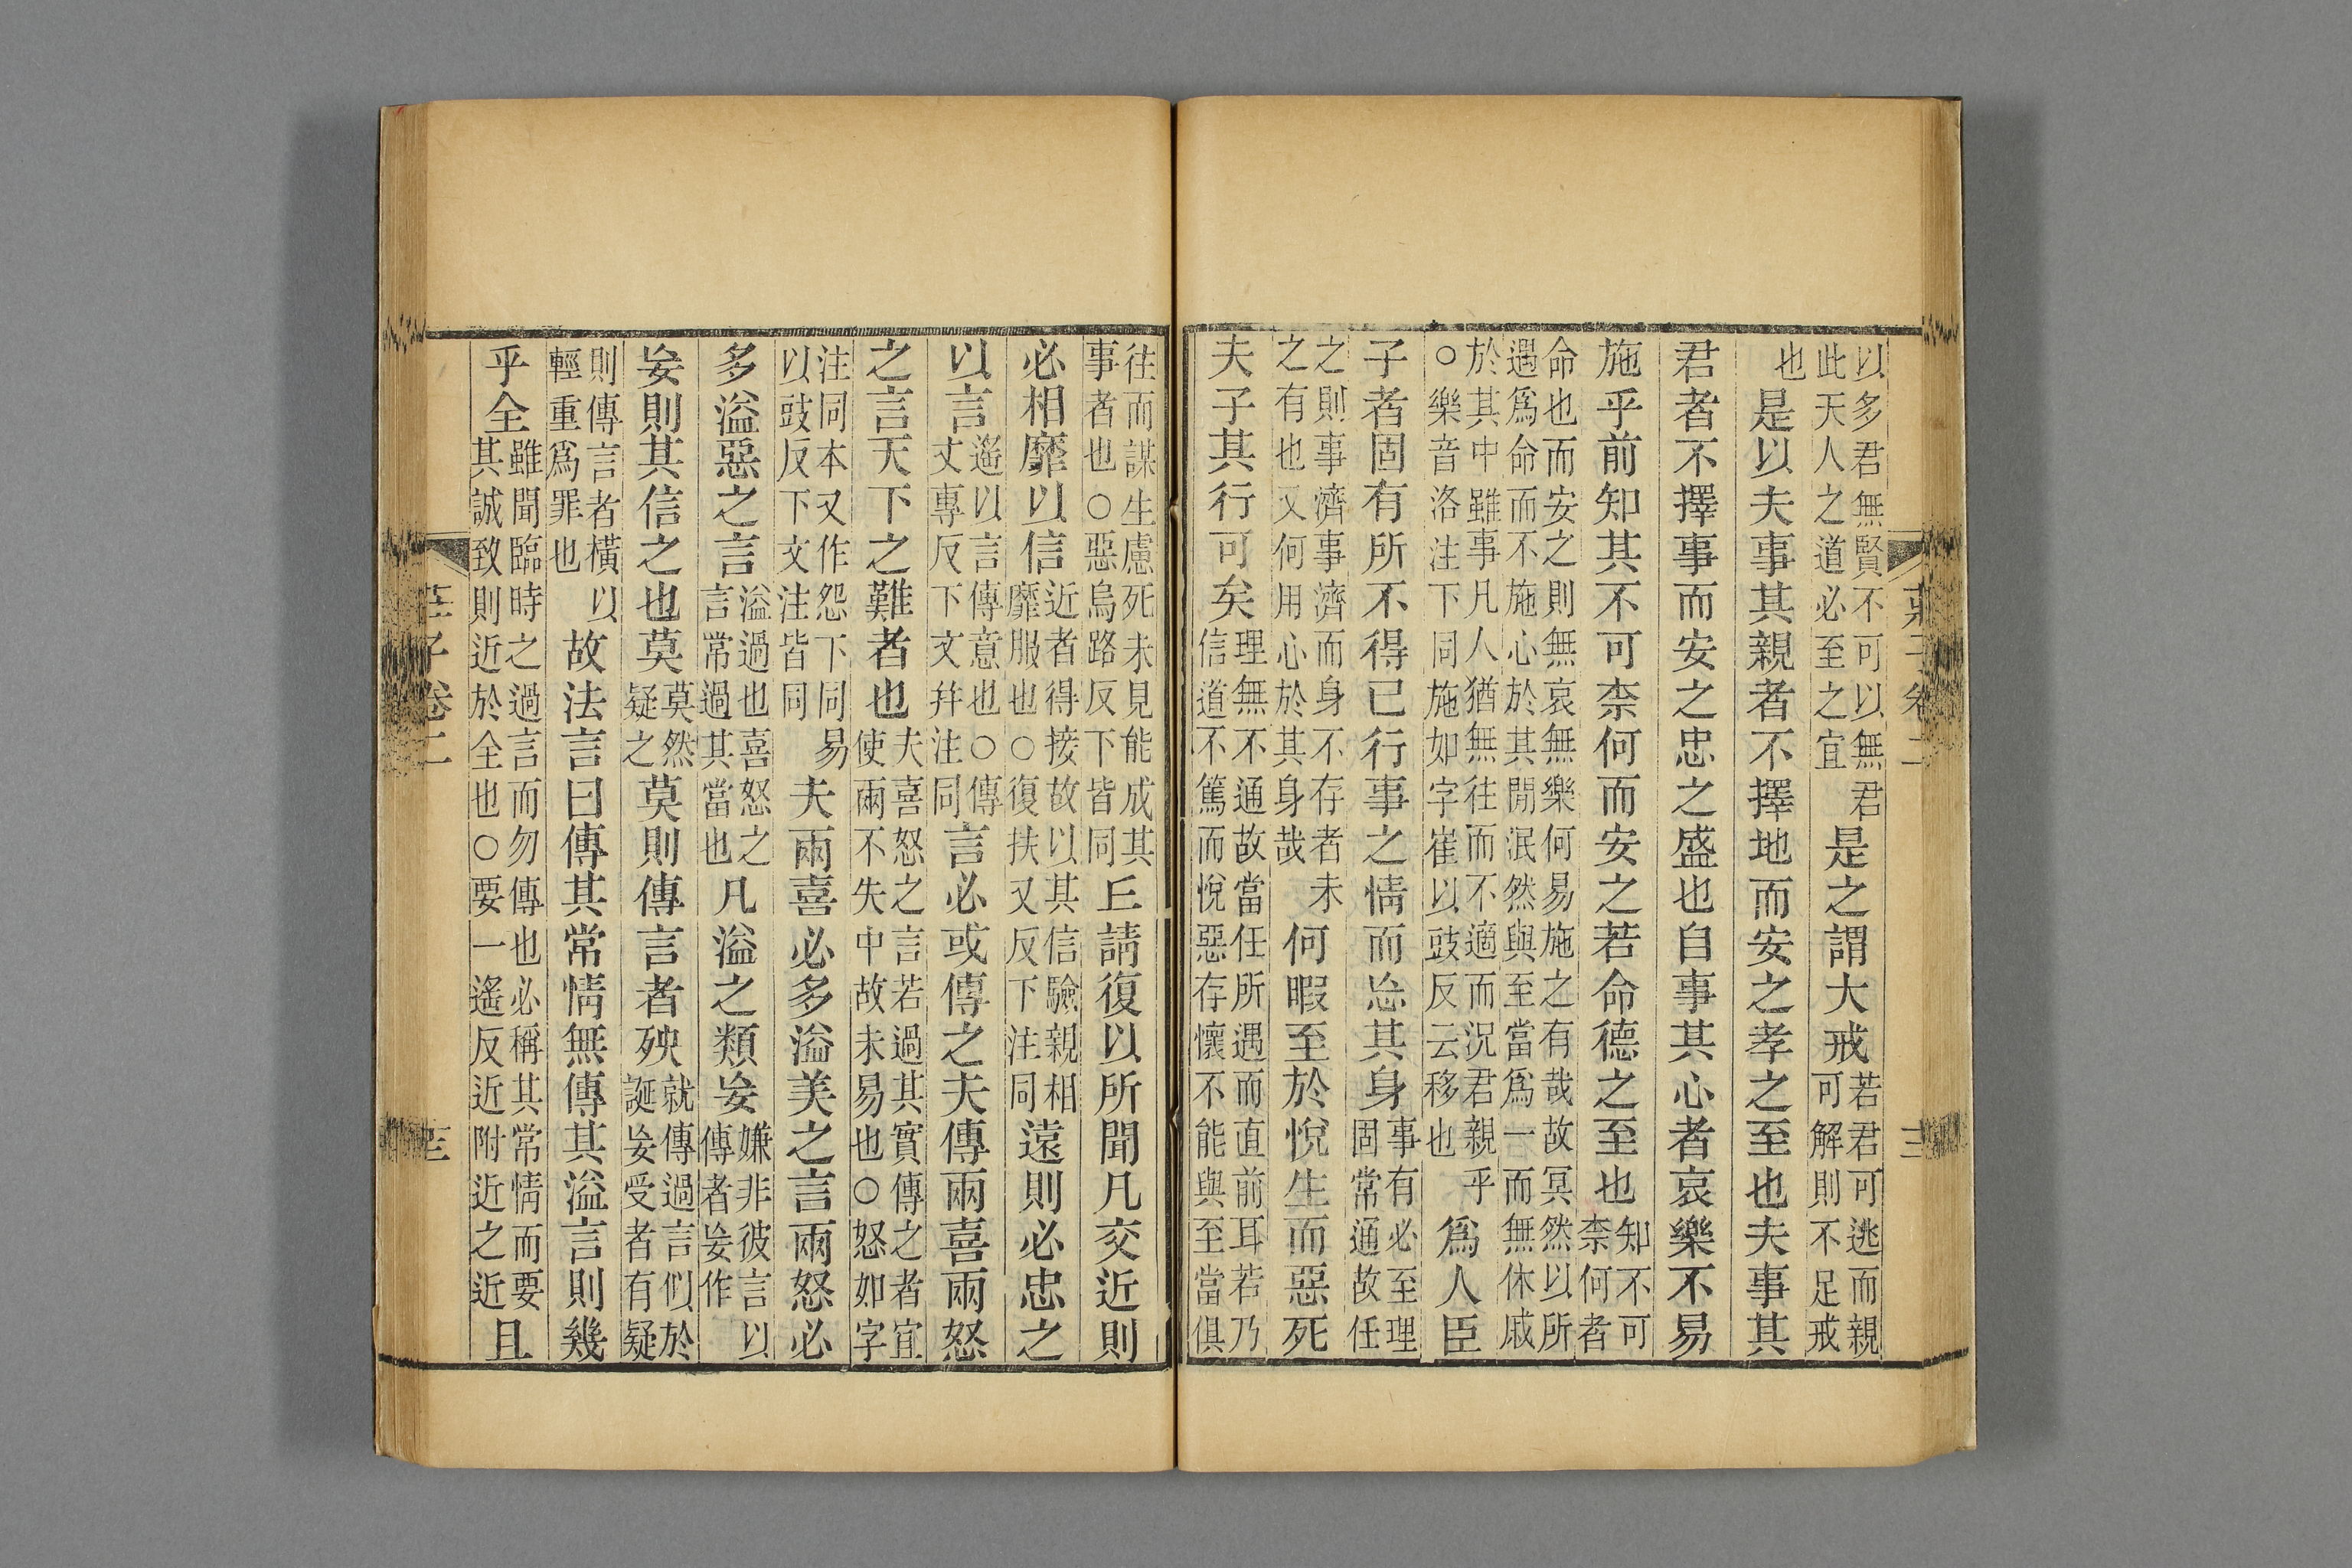 以多君無賢不可以無君
此天人之道必至之宜
是之謂大戒
若君可逃而親
可解則不足戒
也
是以夫事其親者不擇地而安之孝之至也夫事其
君者不擇事而安之忠之盛也自事其心者哀樂不易
施乎前知其不可柰何而安之若命德之至也
知不可
柰何者
命也而安之則無哀無樂何易施之有哉故冥然以所
遇爲命而不施心於其閒泯然與至當爲一而無休戚
於其中雖事凡人猶無往而不適而況君親乎
○樂音洛注下同施如字崔以豉反云移也
爲人臣
子者固有所不得已行事之情而忘其身
事有必至理
固常通故任
之則事濟事濟而身不存者未
之有也又何用心於其身哉
何暇至於悅生而惡死
夫子其行可矣
理無不通故當任所遇而直前耳若乃
信道不篤而悅惡存懷不能與至當俱
往而謀生慮死未見能成其
事者也○惡烏路反下皆同
丘請復以所聞凡交近則
必相靡以信
近者得接故以其信驗親相
靡服也○復扶又反下注同
遠則必忠之
以言
遙以言傳意也○傳
丈專反下文幷注同
言必或傳之夫傳兩喜兩怒
之言天下之難者也
夫喜怒之言若過其實傳之者宜
使兩不失中故未易也○怒如字
注同本又作怨下同易
以豉反下文注皆同
夫兩喜必多溢美之言兩怒必
多溢惡之言
溢過也喜怒之
言常過其當也
凡溢之類妄
嫌非彼言以
傳者妄作
妄則其信之也莫
莫然
疑之
莫則傳言者殃
就傳過言似於
誕妄受者有疑
則傳言者橫以
輕重爲罪也
故法言曰傳其常情無傳其溢言則幾
乎全
雖聞臨時之過言而勿傳也必稱其常情而要
其誠致則近於全也○要一遙反近附近之近
且
莊子卷二